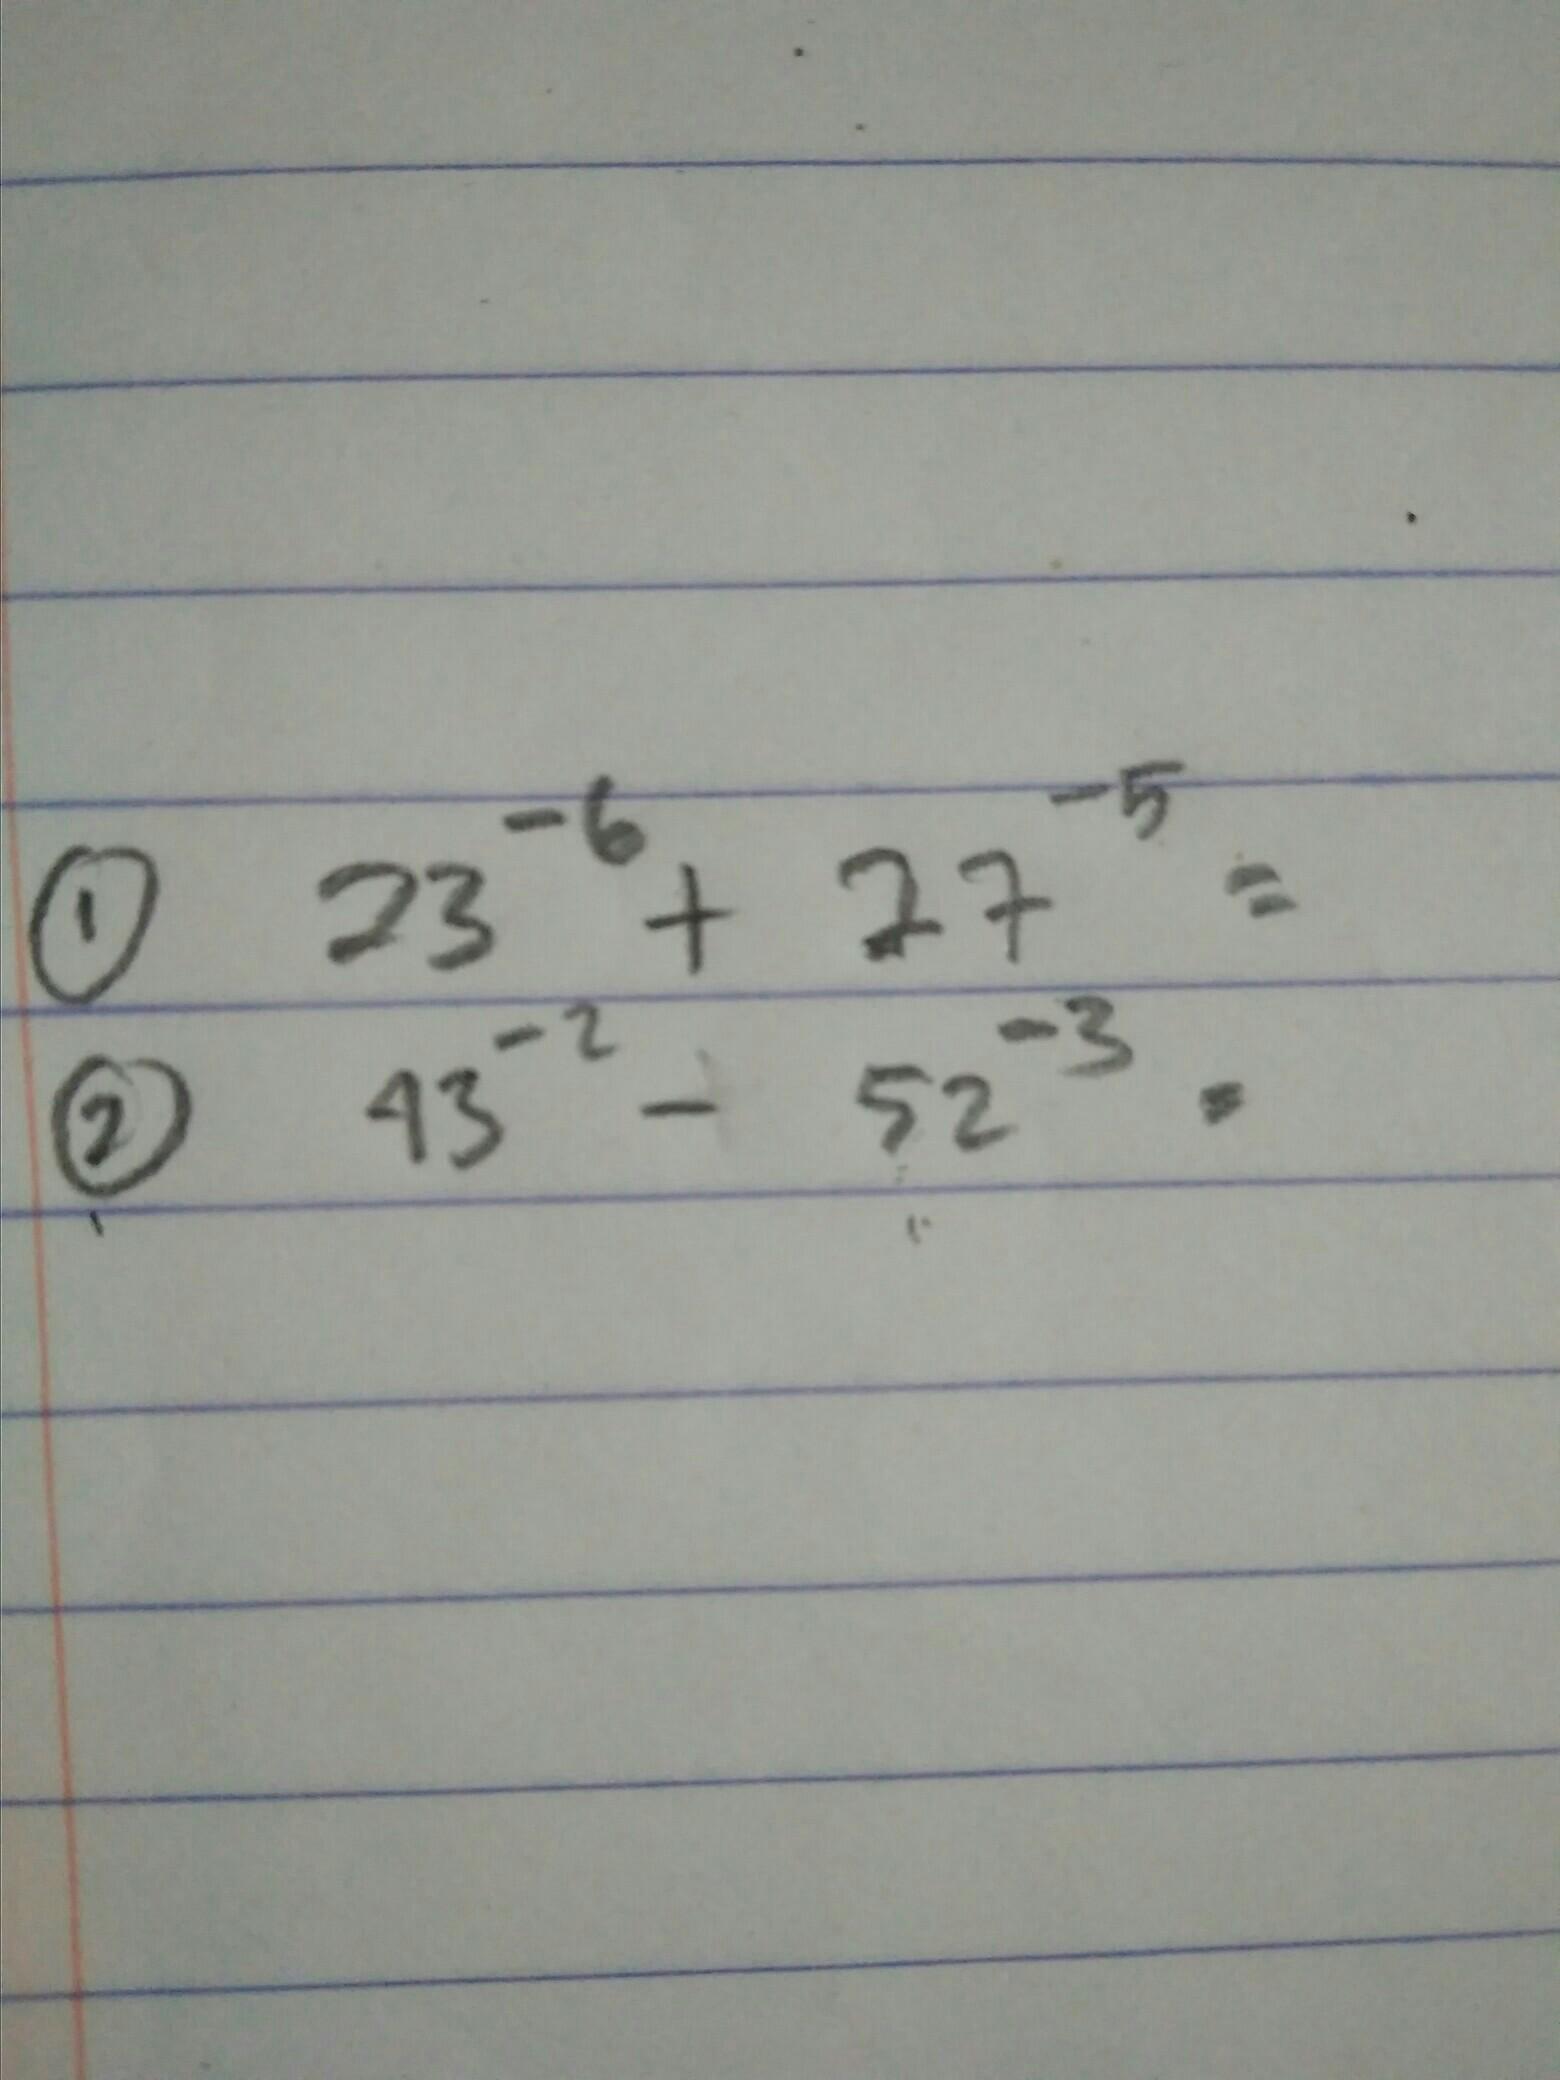 ① 23⁻⁶ + 27⁻⁵ =
② 43⁻² - 52⁻³ =